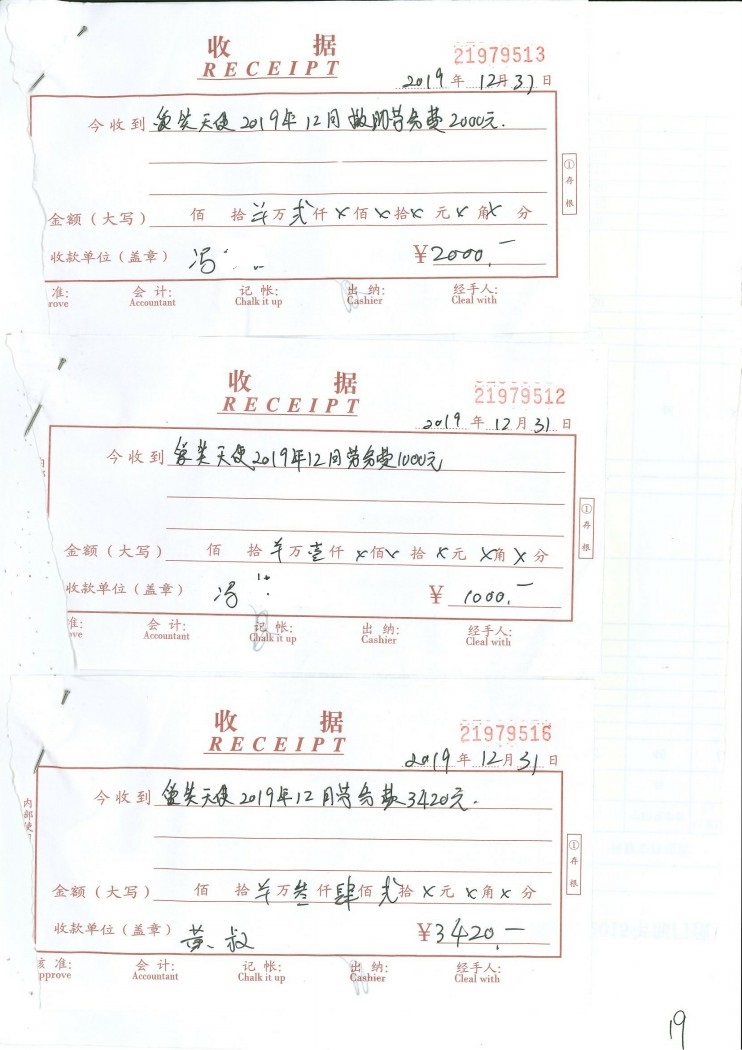 收 据
RECEIPT
21979513
2019年12月31日
今收到 微笑天使2019年12月 劳务费2000元.
金额（大写） 佰 拾 万贰仟×佰×拾×元×角×分
收款单位（盖章） 冯 ¥2000.—
准: 会 计: 记 帐: 出 纳: 经手人:
rove Accountant Chalk it up Cashier Cleal with
①存根
收 据
RECEIPT
21979512
2019年12月31日
今收到 微笑天使2019年12月劳务费1000元
金额（大写） 佰 拾 万壹仟×佰×拾×元×角×分
收款单位（盖章） 冯 ¥1000.—
准: 会 计: 记 帐: 出 纳: 经手人:
ove Accountant Chalk it up Cashier Cleal with
①存根
收 据
RECEIPT
21979516
2019年12月31日
今收到 微笑天使2019年12月劳务费3420元.
内部使
金额（大写） 佰 拾 万叁仟肆佰贰拾×元×角×分
收款单位（盖章） 黄叔 ¥3420.—
核 准: 会 计: 记 帐: 出 纳: 经手人:
pprove Accountant Chalk it up Cashier Cleal with
①存根
19